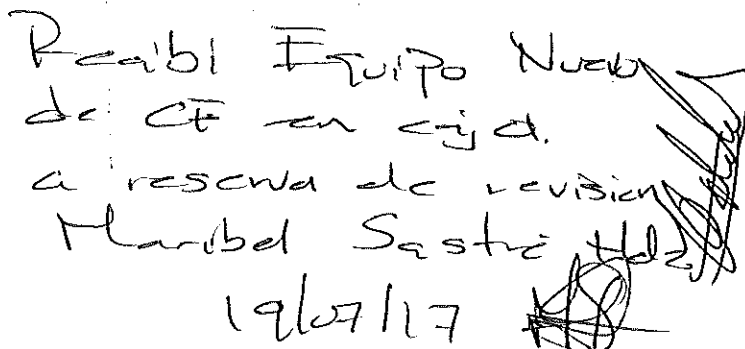 Recibí Equipo Nuevo
de CE en caja.
a reserva de revision
Maribel Sastré Hdz
19/07/17